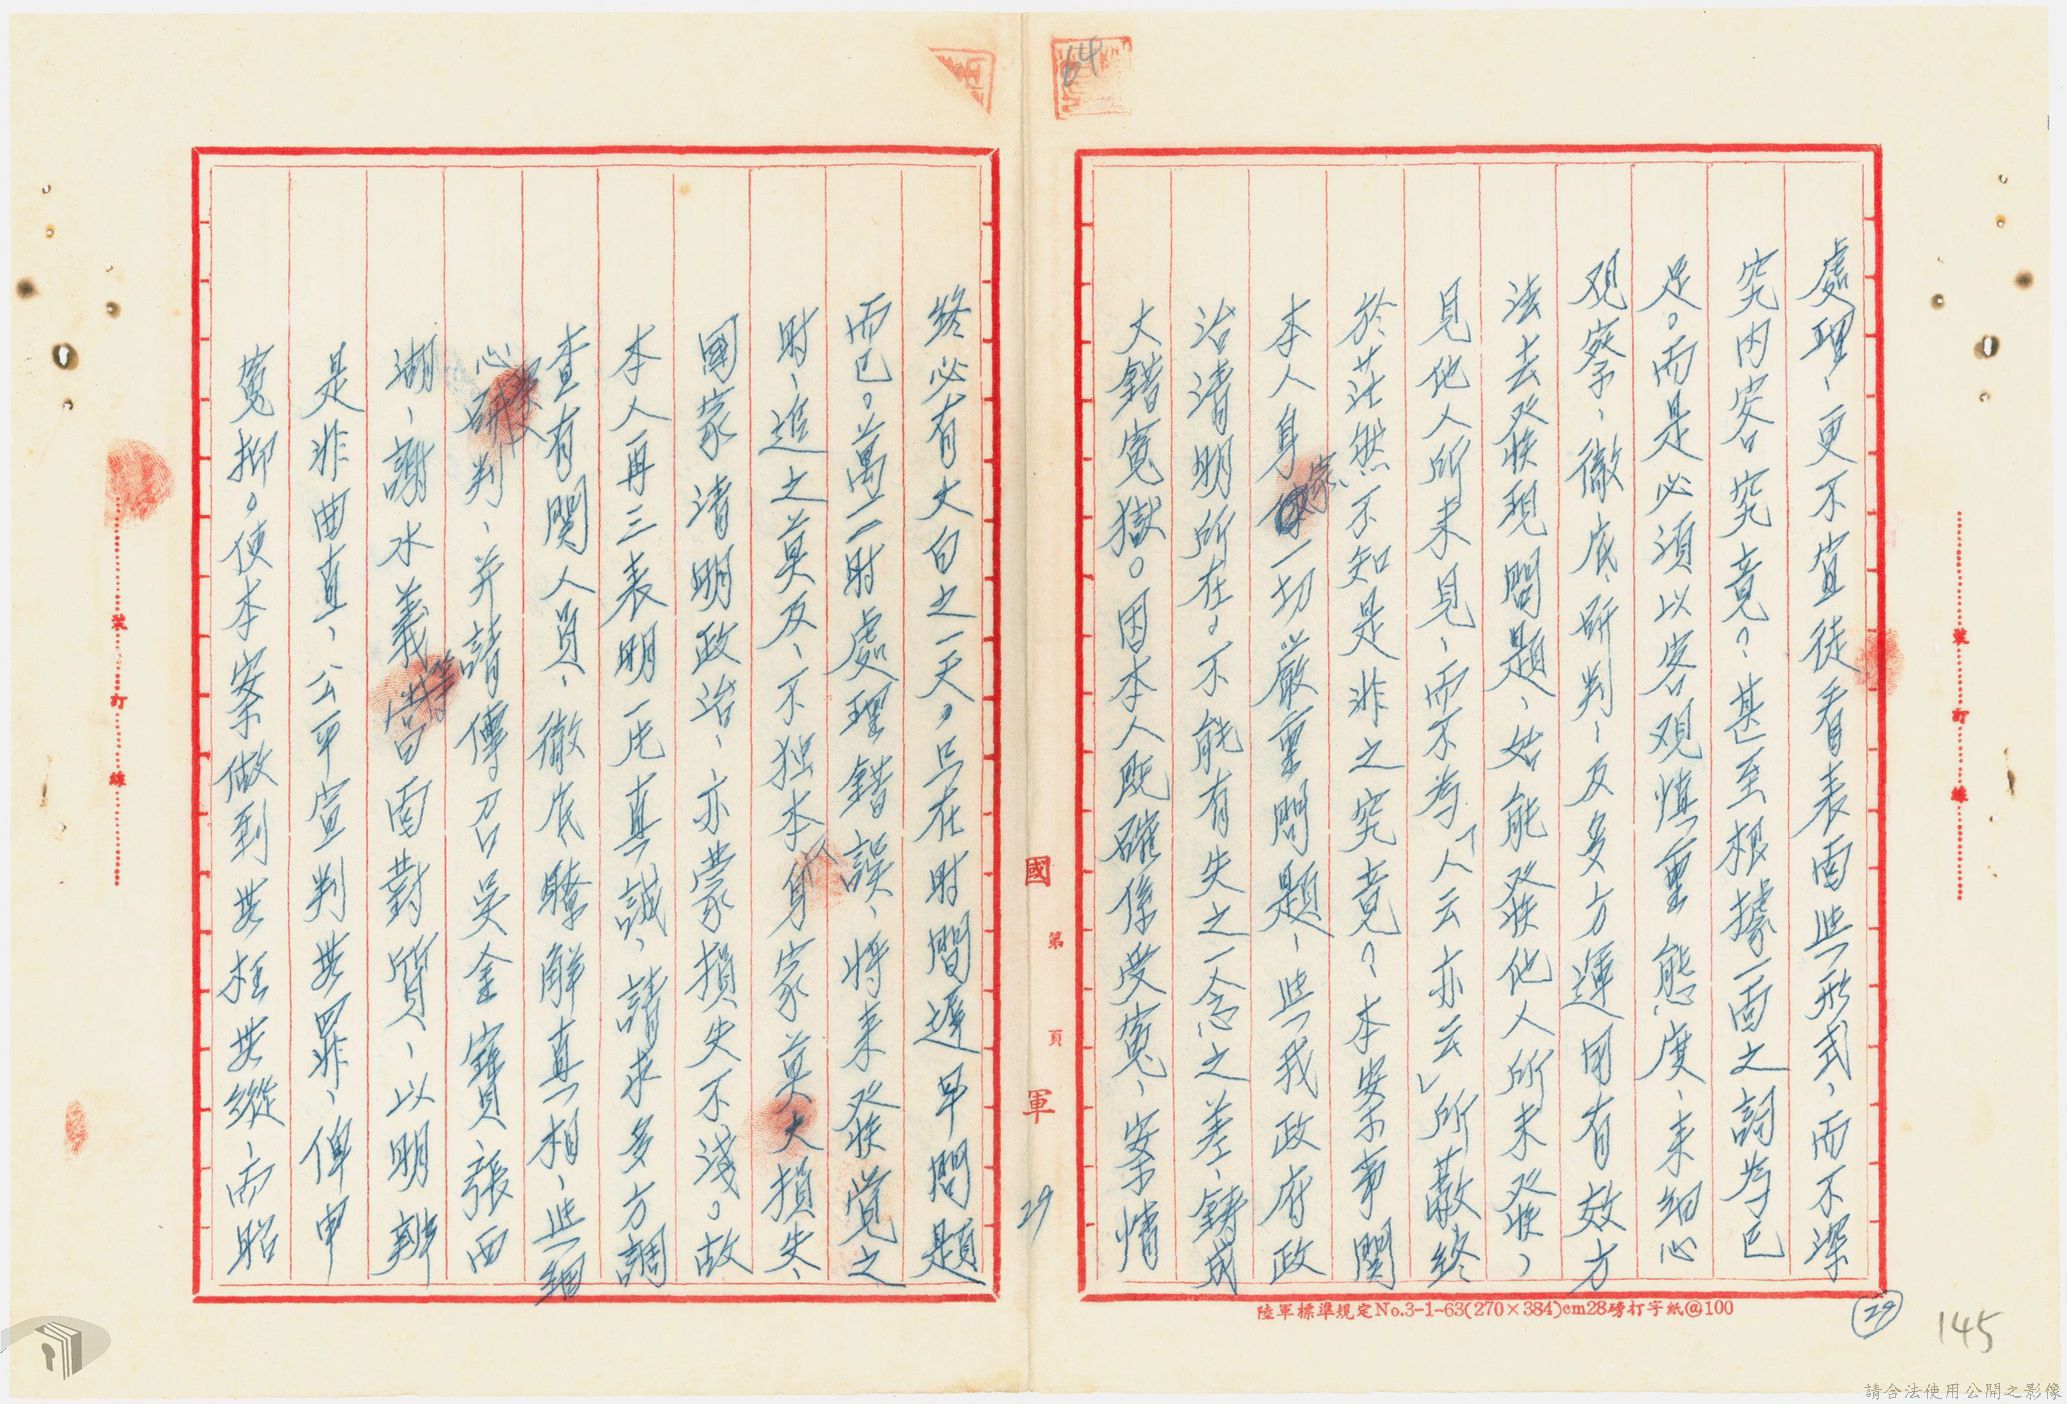 處理、更不宜徒看表面與形式、而不深
究内容究竟？甚至根據一面之詞為已
足。而是必須以客观慎重態度、来細心
观察、徹底、研判、及多方運用有效方
法去發掘現問題、始能發掘他人所未發掘、
見他人所未見、而不為「人云亦云」所蔽終
於茫然不知是非之究竟？本案事関
本人身家一切嚴重問題、與我政府政
治清明所在。不能有失之一念之差、鋳成
大錯寃獄。因本人既確係受寃、案情
終必有大白之一天。只在时間遲早問題
而已。萬一一时處理錯誤、将来發掘覚之
时、追之莫及、不独本人身家莫大損失、
國家清明政治、亦蒙損失不淺。故
本人再三表明一片真誠、請求多方調
查有関人員、徹底瞭解真相、與細
心研判、并請傳召吳金寶、張西
湖、謝水義等當面對質、以明辨
是非曲直、公平宣判無罪、俾申
寃抑。使本案做到無枉無縱、而昭
國軍
第 頁
29
29
64
145
裝訂線
裝訂線
陸軍標準規定No.3-1-63(270×384)cm28磅打字紙@100
請合法使用公開之影像